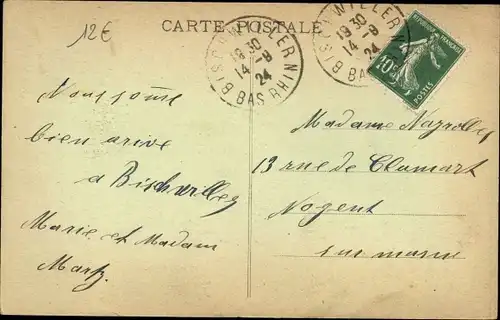 12€
CARTE POSTALE
BISCHWILLER
19 30
14 -9
24
BAS RHIN
BISCHWILLER
19 30
14 -9
24
BAS RHIN
REPUBLIQUE FRANÇAISE
10c
POSTES
Nous somme
bien arive
a Bischwiller
Marie et Madam
Martz
Madame
13 rue de Clamart
Nogent
sur marne